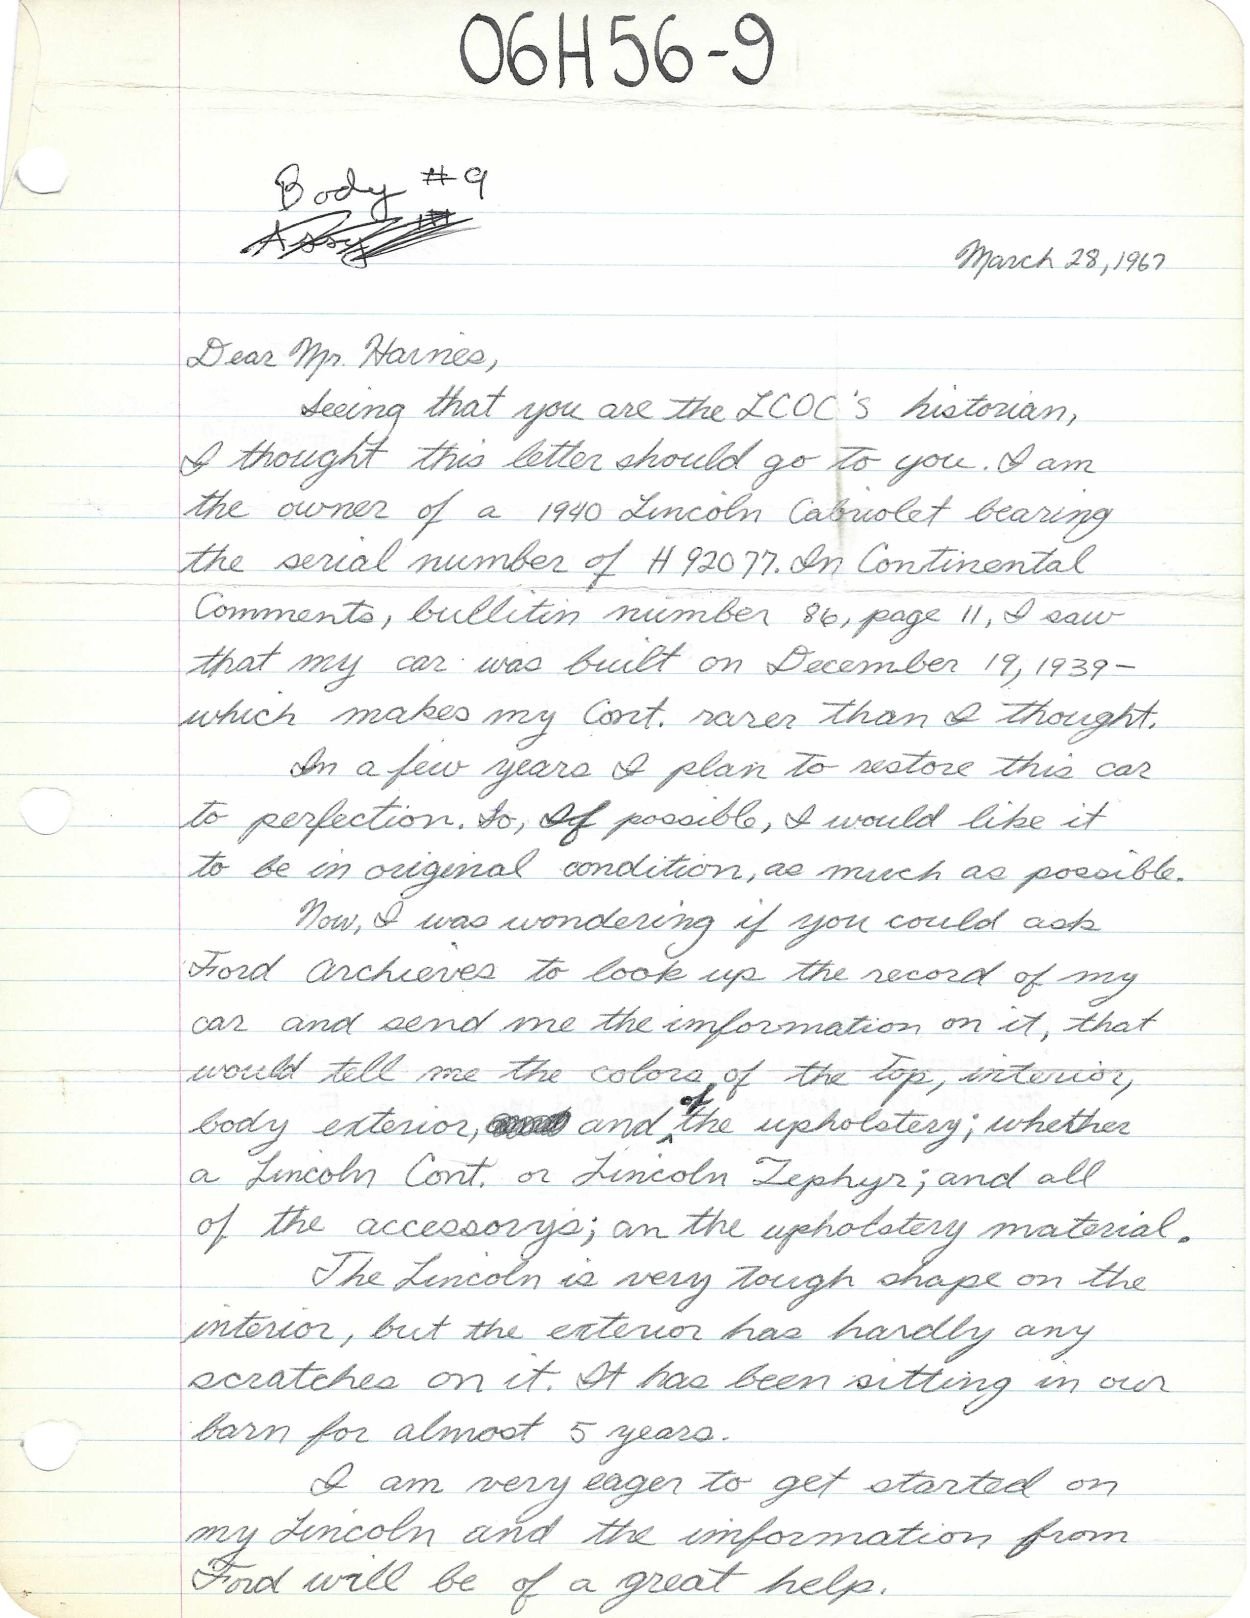 06H56-9
Body #9
Assy #
March 28, 1967
Dear Mr. Haines,
Seeing that you are the LCOC'S historian,
I thought this letter should go to you. I am
the owner of a 1940 Lincoln Cabriolet bearing
the serial number of H 92077. In Continental
Comments, bullitin number 86, page 11, I saw
that my car was built on December 19, 1939-
which makes my Cont. rarer than I thought.
In a few years I plan to restore this car
to perfection. So, If possible, I would like it
to be in original condition, as much as possible.
Now, I was wondering if you could ask
Ford Archieves to look up the record of my
car and send me the information on it, that
would tell me the colors of the top, interior,
body exterior, and of the upholstery; whether
a Lincoln Cont. or Lincoln Zephyr; and all
of the accessorys; an the upholstery material.
The Lincoln is very tough shape on the
interior, but the exterior has hardly any
scratches on it. It has been sitting in our
barn for almost 5 years.
I am very eager to get started on
my Lincoln and the information from
Ford will be of a great help.